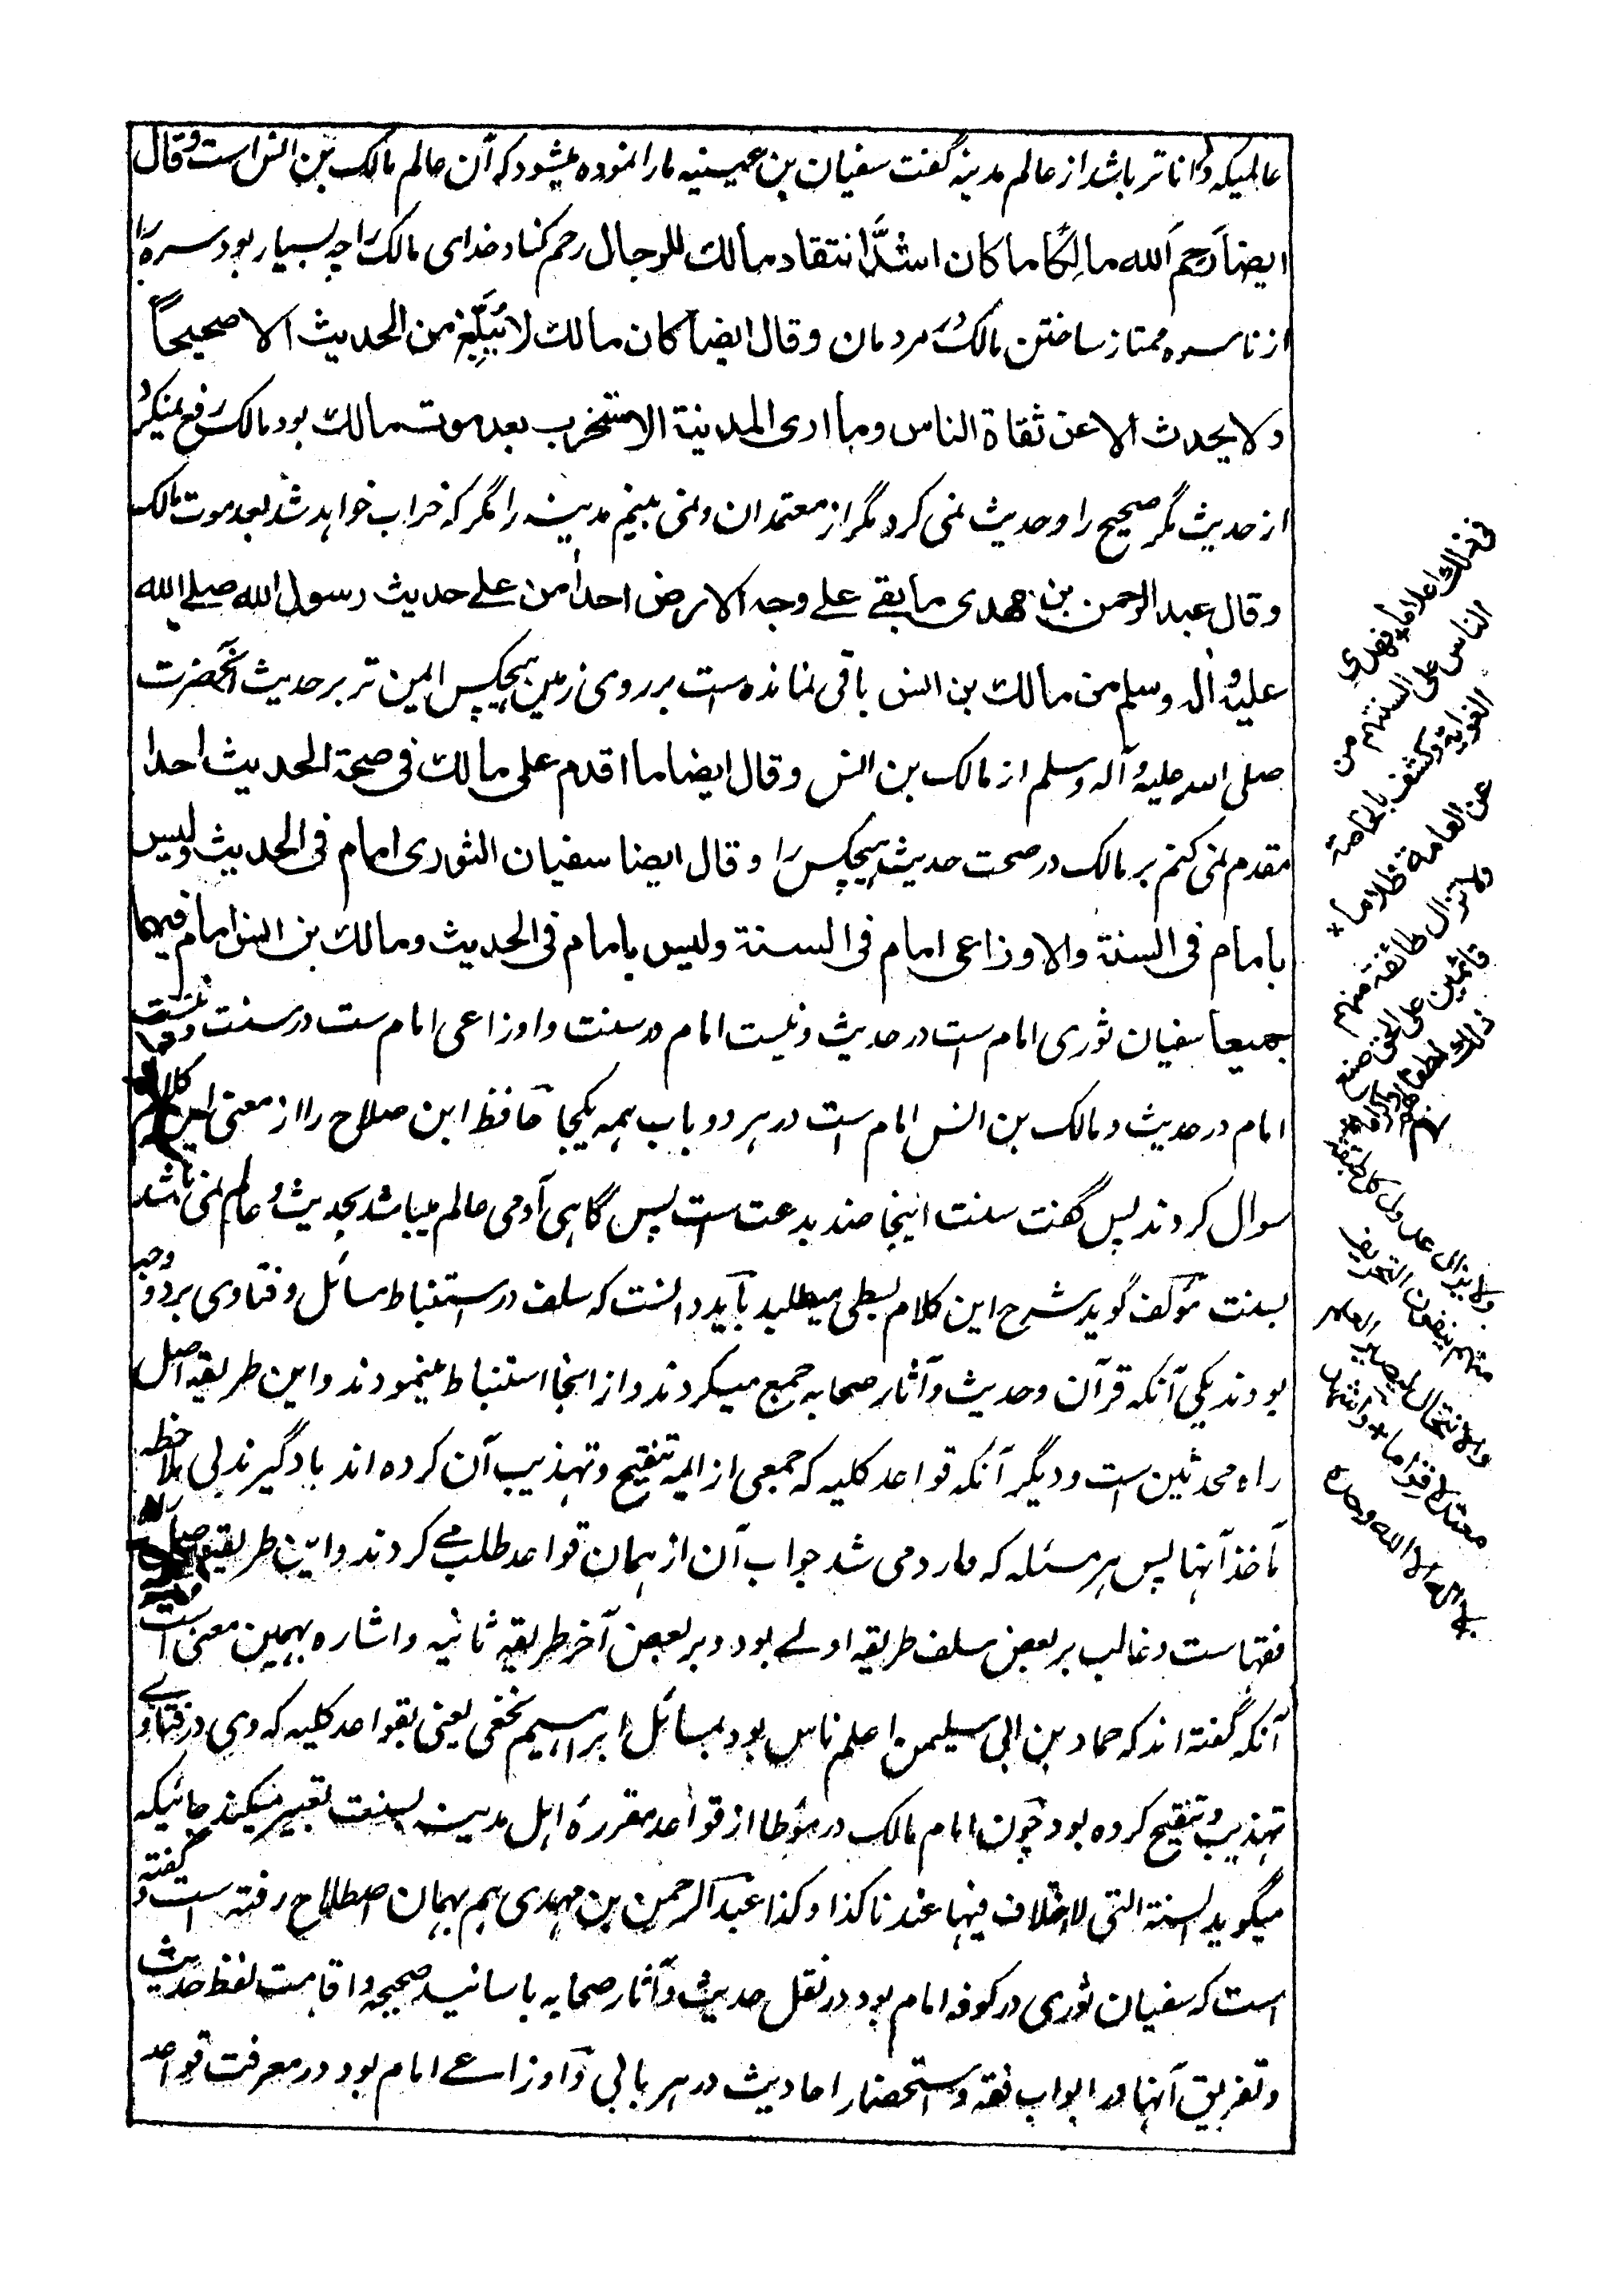 عالمیکه داناتر باشد از عالم مدینه گفت سفیان بن عیینیه ما را نموده میشود که آن عالم مالک بن انس است و قال
ایضا رَحِمَ اَللہ مالِکًا ما کان اشدَّ انتقاد مالک للرجال رحم کناد خدای مالک را چه بسیار بود سره را
از ناسره ممتاز ساختن مالک مردمان و قال ایضا کان مالک لا یُبَلِّغ من الحدیث الا صحیحاً
ولا یحدث الا عن ثقاة الناس وما اری المدینة الا ستخرب بعد موت مالک بود مالک رفع نمیکرد
از حدیث مگر صحیح را و حدیث نمی کرد مگر از معتمدان و نمی بینم مدینه را مگر که خراب خواهد شد بعد موت مالک
وقال عبد الرحمن بن مهدی ما بقے علے وجه الارض احداٰمن علے حدیث رسول الله صلے الله
علیه و آله وسلم من مالک بن انس باقی نمانده ست بر روی زمین هیچکس امین تر بر حدیث آنحضرت
صلی الله علیه و آله وسلم از مالک بن انس و قال ایضا ما اقدم علی مالک فی صحة الحدیث احدا
مقدم نمی کنم بر مالک در صحت حدیث هیچکس را و قال ایضا سفیان الثوری امام فی الحدیث ولیس
بامام فی السنة والاوزاعی امام فی السنة ولیس بامام فی الحدیث ومالک بن انس امام فیهما
جمیعا سفیان ثوری امام ست در حدیث و نیست امام در سنت و اوزاعی امام ست در سنت و نیست
امام در حدیث و مالک بن انس امام ست در هر دو باب همه یکجا حافظ ابن صلاح را از معنی این کلام
سوال کردند پس گفت سنت اینجا ضد بدعت ست پس گاهی آدمی عالم میباشد بحدیث و عالم نمی باشد
بسنت مؤلف گوید شرح این کلام بسطی میطلبد باید دانست که سلف در استنباط مسائل و فتاوی بر دو وجه
بودند یکی آنکه قرآن و حدیث و آثار صحابه جمع میکردند و از انجا استنباط مینمودند و این طریقه اصل
راه محدثین ست و دیگر آنکه قواعد کلیه که جمعی از ائمه تنقیح و تهذیب آن کرده اند یاد گیرند بی ملاحظه
مأخذ آنها پس هر مسئله که وارد می شد جواب آن از همان قواعد طلب مے کردند و این طریقه اصل راه
فقهاست و غالب بر بعض سلف طریقه اولے بود و بر بعض آخر طریقه ثانیه و اشاره بهمین معنی است
آنکه گفته اند که حماد بن ابی سلیمن اعلم ناس بود بمسائل ابراهیم نخعی یعنی بقواعد کلیه که وی در فتاوے
تهذیب و تنقیح کرده بود چون امام مالک در مؤطا از قواعد مقرره اهل مدینه بسنت تعبیر میکند جائیکه
میگوید السنة التی لا اختلاف فیها عندنا کذا و کذا عبد الرحمن بن مهدی هم بهمان اصطلاح رفته ست و گفته
است که سفیان ثوری در کوفه امام بود در نقل حدیث و آثار صحابه باسانید صحیحه و اقامت لفظ حدیث
و تفریق آنها در ابواب فقه و استحضار احادیث در هر بابی و اوزاعے امام بود در معرفت قواعد
فی ذلک اعلاماً فهدی
الناس علی السنتهم من
الغوایة وکشف بالخاصة
عن العامة ظلاماً *
ولا تزال طائفة منهم
قائمین علی الحق صنع
ذلک لطفا
بهم
ولا یزال عدول کل طبقة
منهم ینفون التحریف
والانتحال لیصیر العلم
معتدلا قواما * واشهد ان
لا اله الا الله وحده